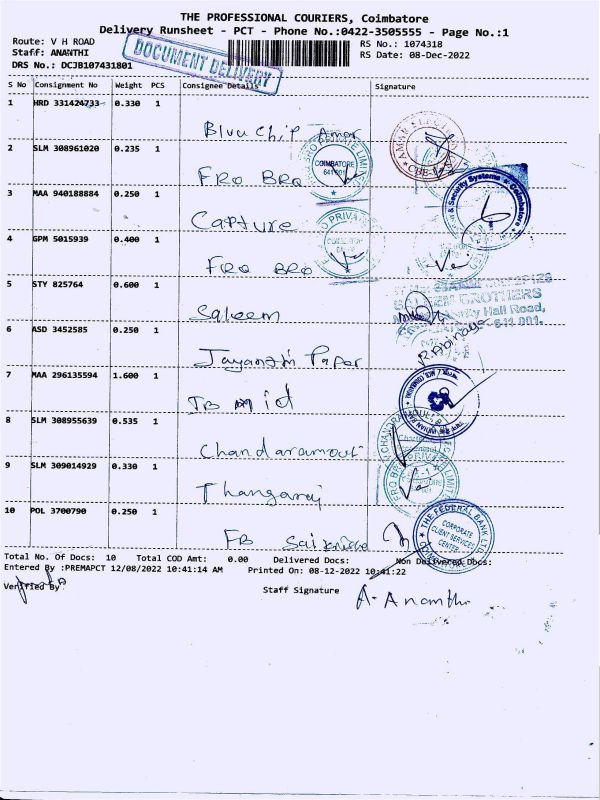 THE PROFESSIONAL COURIERS, Coimbatore
Delivery Runsheet - PCT - Phone No.:0422-3505555 - Page No.:1
Route: V H ROAD
RS No.: 1074318
Staff: ANANTHI
RS Date: 08-Dec-2022
DRS No.: DCJB107431801
DOCUMENT DELIVERY
S No Consignment No Weight PCS Consignee Details Signature
1 HRD 331424733 0.330 1
Bluu Chip Amar
2 SLM 308961020 0.235 1
COIMBATORE
641 001
FRO BRO
3 MAA 940188884 0.250 1
& Security Systems * Coimbatore
Capture
4 GPM 5015939 0.400 1
FRO BRO
5 STY 825764 0.600 1
BROTHERS
Hall Road,
641 001.
Saleem
R. Abinaya
6 ASD 3452585 0.250 1
Jayanthi Paper
7 MAA 296135594 1.600 1
IB mid
8 SLM 308955639 0.535 1
Chandaramouli
9 SLM 309014929 0.330 1
Thangaraj
10 POL 3700790 0.250 1
THE FEDERAL BANK LTD.
CORPORATE
CLIENT SERVICE
CENTER
FB
Total No. Of Docs: 10 Total COD Amt: 0.00 Delivered Docs: Non Delivered Docs:
Entered By :PREMAPCT 12/08/2022 10:41:14 AM Printed On: 08-12-2022 10:41:22
Verified By
Staff Signature
A. Ananthi